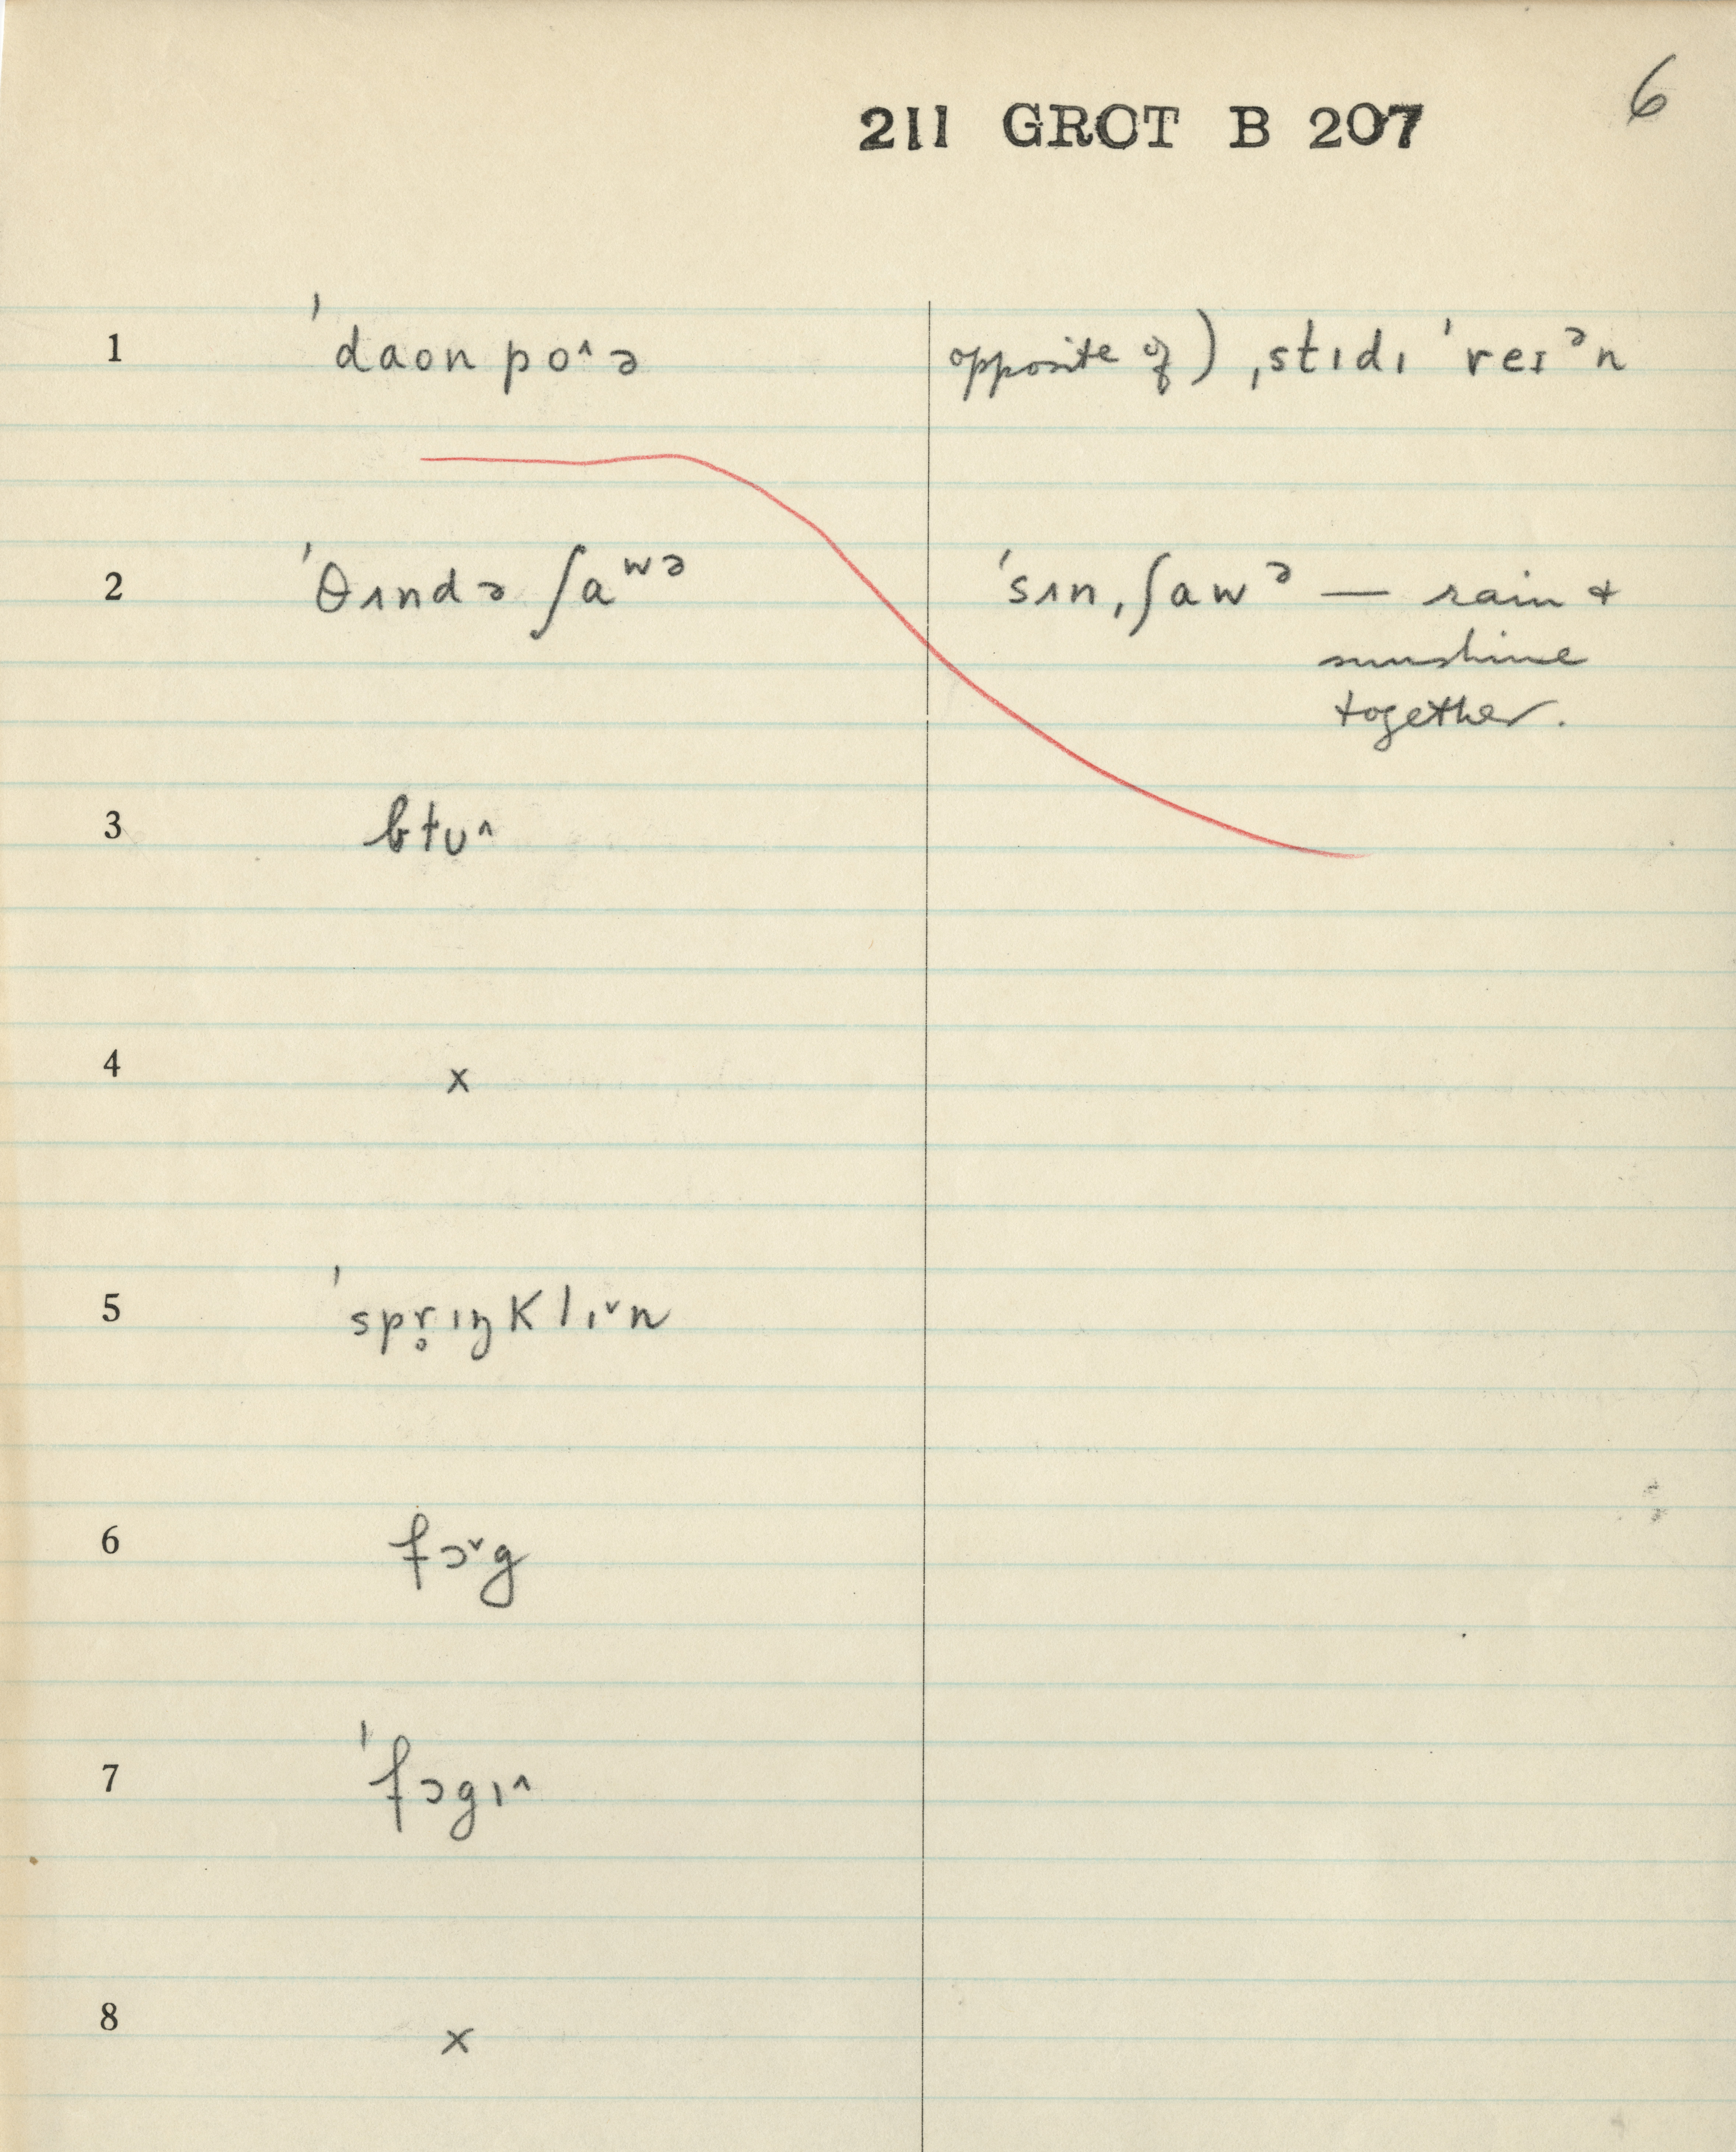 6
211 GROT B 207
1 ˈdaon po^ə opposite of) ˌstɪdɪ ˈreɪᵊn
2 ˈθʌndə ʃaʷᵊ ˈsʌnˌʃawᵊ — rain +
sunshine
together.
3 btu^
4 x
5 ˈspr̥ɪŋklɪ˅n
6 fɔ˅g
7 ˈfɔgɪ^
8 x